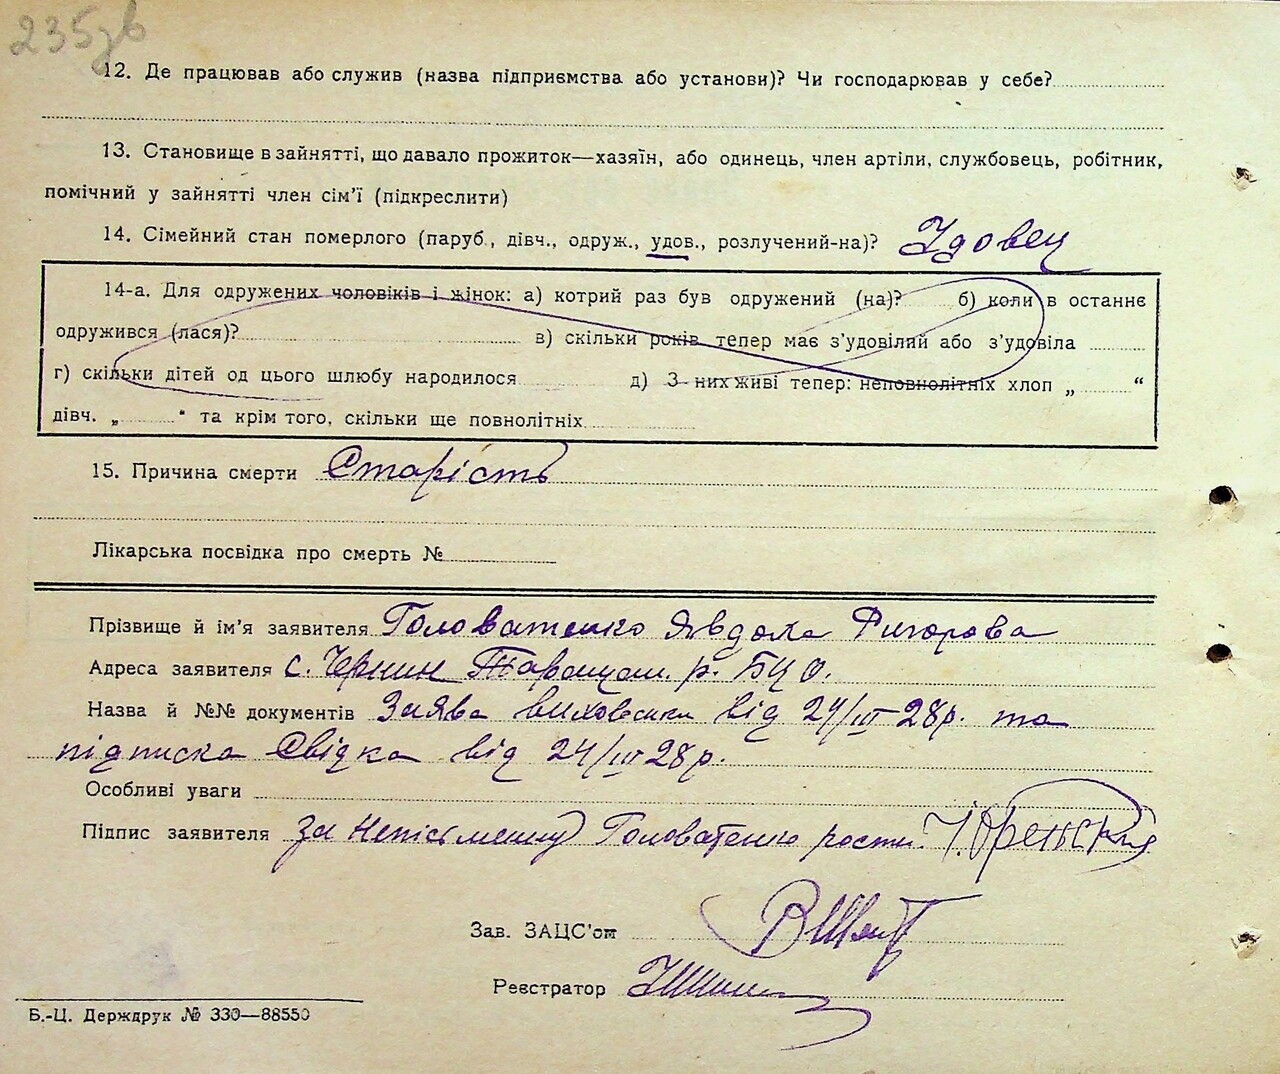 235зв
12. Де працював або служив (назва підприємства або установи)? Чи господарював у себе?
13. Становище в зайнятті, що давало прожиток—хазяїн, або одинець, член артіли, службовець, робітник,
помічний у зайнятті член сім'ї (підкреслити)
14. Сімейний стан померлого (паруб., дівч., одруж., удов., розлучений-на)? Удовец
14-а. Для одружених чоловіків і жінок: а) котрий раз був одружений (на)? б) коли в останнє
одружився (лася)? в) скільки років тепер має з'удовілий або з'удовіла
г) скільки дітей од цього шлюбу народилося д) З них живі тепер: неповнолітніх хлоп „ “
дівч. „ “ та крім того, скільки ще повнолітніх
15. Причина смерти Старість
Лікарська посвідка про смерть №
Прізвище й ім'я заявителя Головатенко Явдоха
Адреса заявителя с. Чернин Таращан. р. БЦО.
Назва й №№ документів Заява від 24/III-28р. та
підписка Свідка від 24/III 28р.
Особливі уваги
Підпис заявителя за неписьменну Головатенко
Зав. ЗАЦС'ом
Реєстратор
Б.-Ц. Держдрук № 330—88550